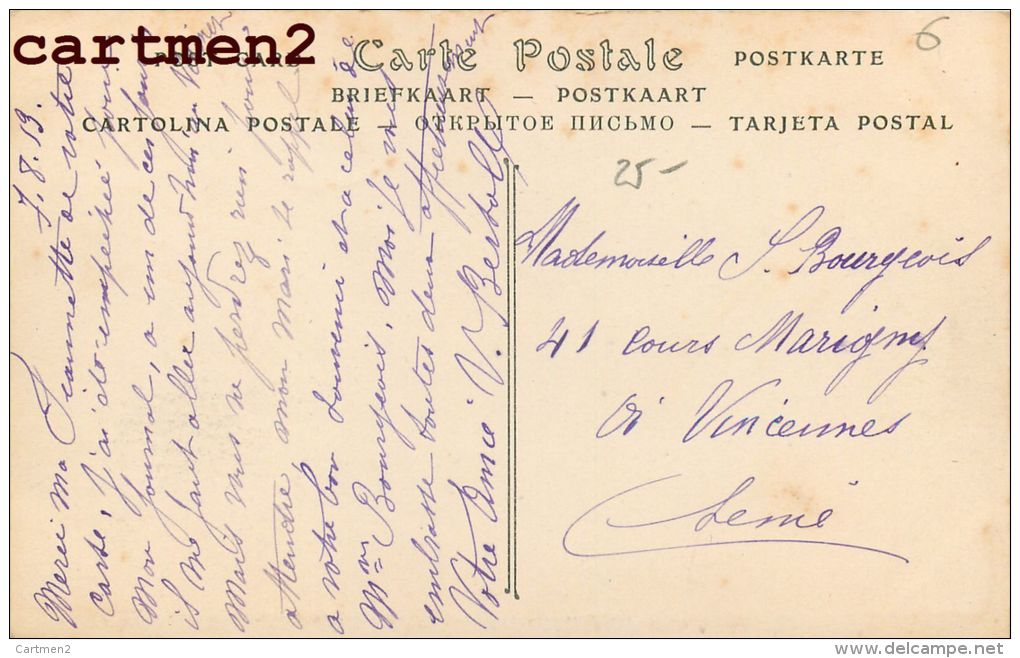 cartmen2
6
POST CARD Carte Postale POSTKARTE
BRIEFKAART — POSTKAART
CARTOLINA POSTALE — ОТКРЫТОЕ ПИСЬМО — TARJETA POSTAL
25-
7.8.13.
Merci ma Jeannette de votre
carte, j'ai été empêchée pour
mon journal, a un de ces jours
il me faut aller aujourd'hui
Mais vous ne perdrez rien pour
attendre mon mari se rappelle
a votre bon souvenir et a celui de
Mme Bourgeois, Moi je vous
embrasse toutes deux affectueusement
Votre Amie V. Bertoll
Mademoiselle S. Bourgeois
41 Cours Marigny
à Vincennes
Seine
Cartmen2
delcampe.net